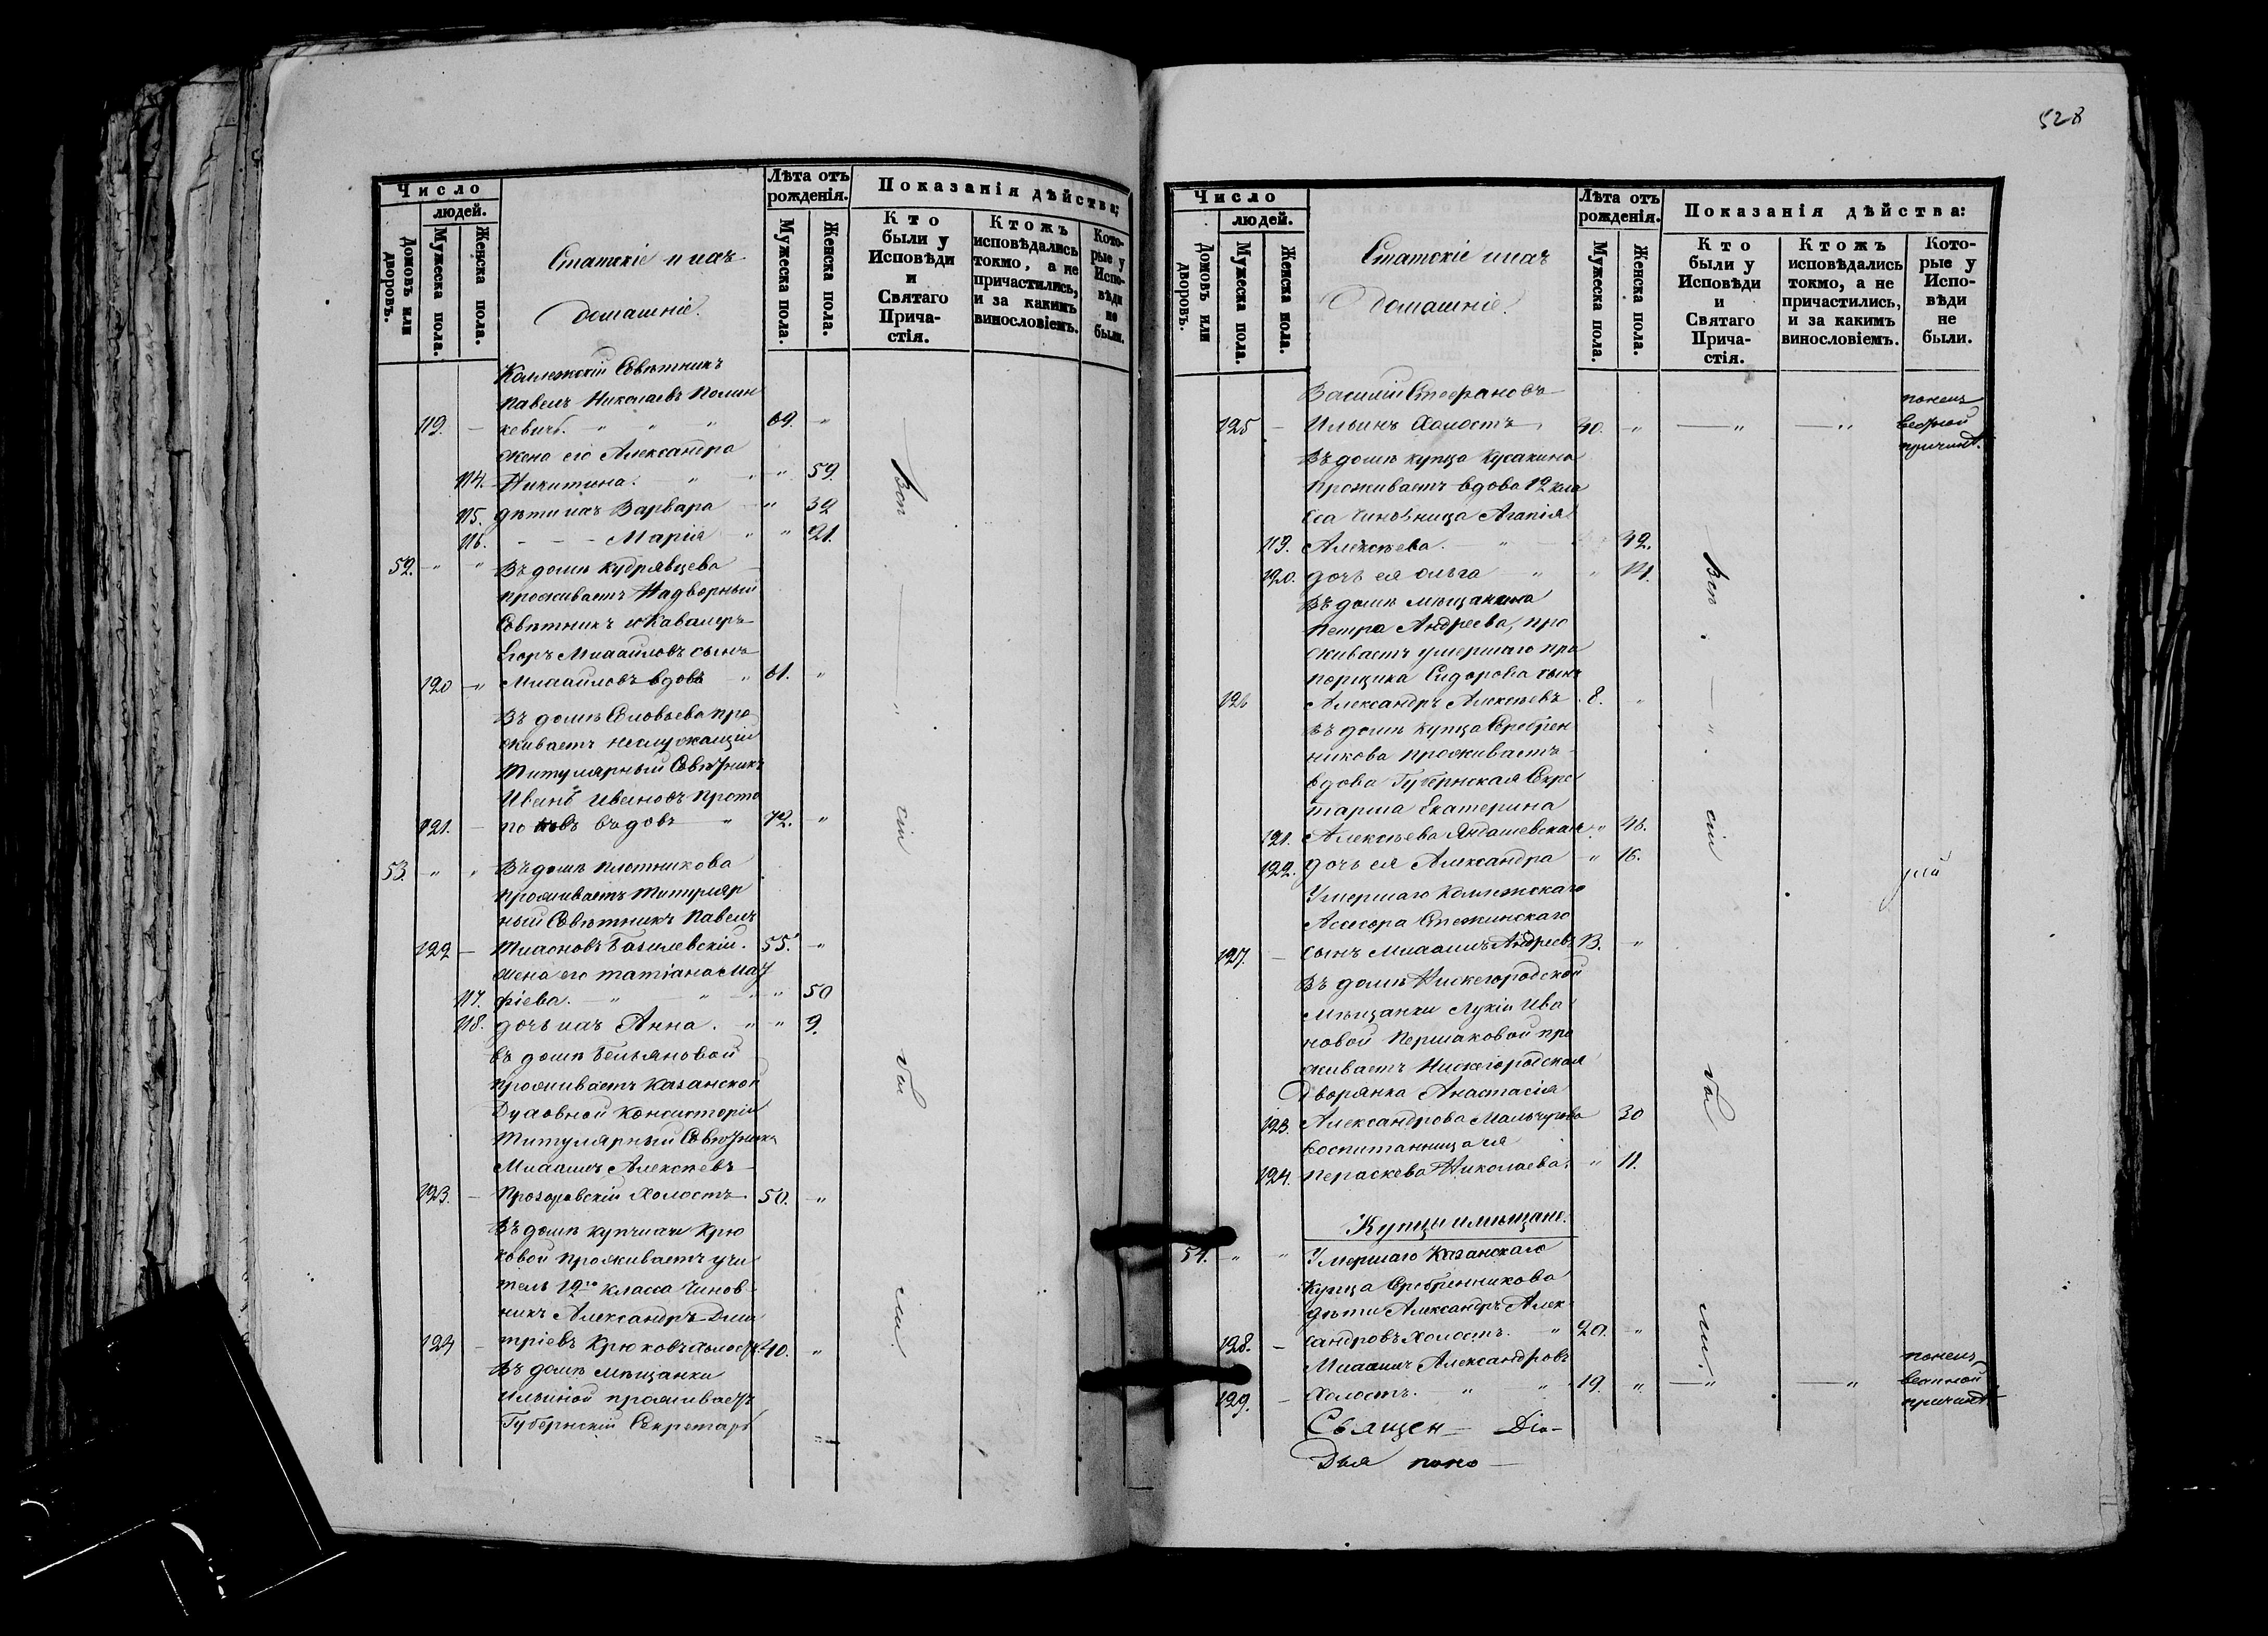 Число
людей.
Домовъ или дворовъ.
Мужеска пола.
Женска пола.
Статскіе и ихъ
домашніе.
Лѣта отъ
рожденія.
Мужеска пола.
Женска пола.
Показанія дѣйства;
Кто
были у
Исповѣди
и
Святаго
Прича-
стія.
Ктожъ
исповѣдались
токмо, а не
причастились,
и за какимъ
винословіемъ.
Кото-
рые у
Испо-
вѣди
не
были.
Коллежскій Совѣтникъ
Павелъ Николаевъ Полин
119. кевичъ. 69.
жена его Александра
114. Никитина. 59.
115. дѣти ихъ Варвара 32
116. Марія 21.
52. Въ домѣ Кудрявцева
проживаетъ Надворный
Совѣтникъ и Кавалеръ
Егоръ Михайловъ сынъ
120 Михайловъ вдовъ 61.
Въ домѣ Соловьева про
живаетъ неслужащій
Титулярный Совѣтникъ
Иванъ Ивановъ Прото
121. повъ вдовъ 72.
53. Въ домѣ Плотникова
проживаетъ Титуляр
ный Совѣтникъ Павелъ
122 Базилевскій. 55.
жена его Татіана
117. фіева. 50
118. дочь ихъ Анна. 9.
въ домѣ Бельяновой
проживаетъ Казанской
Духовной Консисторіи
Титулярный Совѣтникъ
Михаилъ Алексѣевъ
123. Прозоровскій Холостъ 50.
Въ домѣ купчихи Крю
ковой проживаетъ учи
тель 12го класса Чинов
никъ Александръ Дми
124 тріевъ Крюковъ холостъ 40.
Въ домѣ мѣщанки
Ильиной проживаетъ
Губернскій Секретарь
Вси сіи были
528
Число
людей.
Домовъ или дворовъ.
Мужеска пола.
Женска пола.
Статскіе и ихъ
домашніе.
Лѣта отъ
рожденія.
Мужеска пола.
Женска пола.
Показанія дѣйства:
Кто
были у
Исповѣди
и
Святаго
Прича-
стія.
Ктожъ
исповѣдались
токмо, а не
причастились,
и за какимъ
винословіемъ.
Кото-
рые у
Испо-
вѣди
не
были.
Василій Стефановъ
125 Ильинъ Холостъ 40.
Въ домѣ купца Кусакина
проживаетъ вдова 12 кла
сса Чиновница Агапія
119. Алексѣева. 42.
120. дочь ея Ольга 14.
Въ домѣ мѣщанина
Петра Андреева, про
живаетъ умершаго пра
порщика Сидорова сынъ
126 Александръ Алексѣевъ 8.
Въ домѣ купца Серебрен
никова проживаетъ
вдова Губернская Секре
тарша Екатерина
121. Алексѣева Яндашевская 46.
122. дочь ея Александра 16.
Умершаго Коллежскаго
Ассесора Снежинскаго
127. сынъ Михаилъ Андреевъ 13.
Въ домѣ Нижегородской
Мѣщанки Лукіи Ива
новой Першаковой про
живаетъ Нижегородская
Дворянка Анастасія
123. Александрова Мальчугова 30
воспитанница ея
124. Пераскева Николаева. 11.
Купцы и мѣщане.
54. Умершаго Казанскаго
Купца Серебренникова
дѣти Александръ Алек
128. сандровъ холостъ. 20.
Михаилъ Александровъ
129. Холостъ. 19.
Священ Діа
Вси сіи были